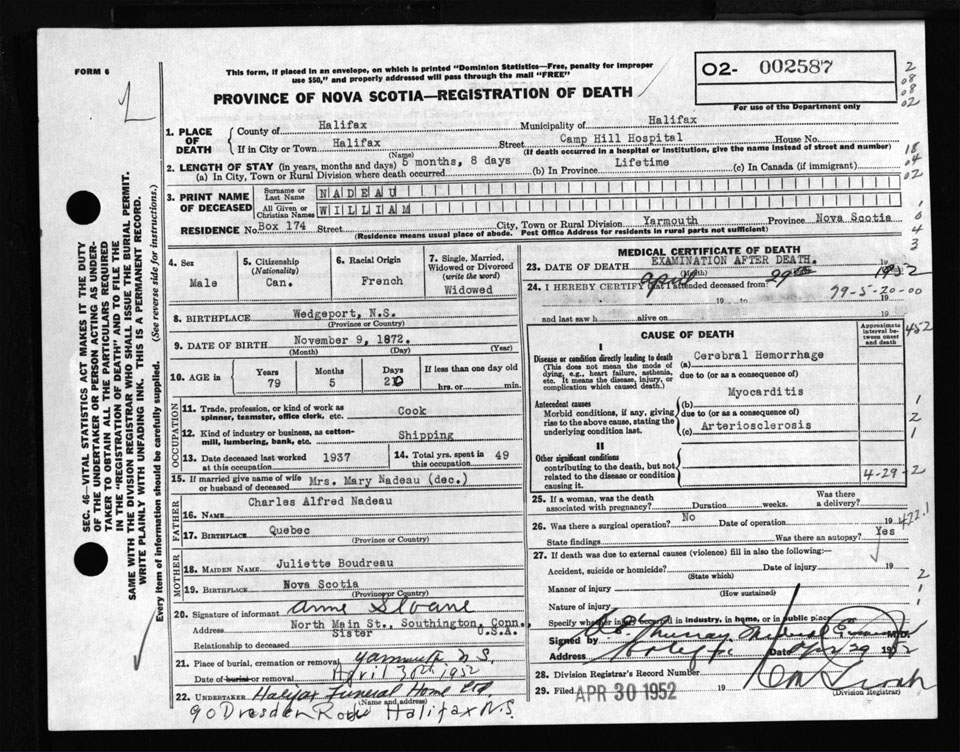 FORM 6
This form, if placed in an envelope, on which is printed "Dominion Statistics—Free, penalty for improper
use $50," and properly addressed will pass through the mail "FREE"
PROVINCE OF NOVA SCOTIA—REGISTRATION OF DEATH
02- 002587
For use of the Department only
2
08
08
02
18
04
02
1. PLACE OF DEATH { County of Halifax Municipality of Halifax
If in City or Town Halifax Street Camp Hill Hospital House No.
(Name) (If death occurred in a hospital or institution, give the name instead of street and number)
2. LENGTH OF STAY (in years, months and days) 5 months, 8 days Lifetime
(a) In City, Town or Rural Division where death occurred (b) In Province (c) In Canada (if immigrant)
3. PRINT NAME OF DECEASED { Surname or Last Name NADEAU
All Given or Christian Names WILLIAM
RESIDENCE No. Box 174 Street City, Town or Rural Division Yarmouth Province Nova Scotia
(Residence means usual place of abode. Post Office Address for residents in rural parts not sufficient)
4. Sex
Male
5. Citizenship
(Nationality)
Can.
6. Racial Origin
French
7. Single, Married,
Widowed or Divorced
(write the word)
Widowed
8. BIRTHPLACE Wedgeport, N.S.
(Province or Country)
9. DATE OF BIRTH November 9, 1872.
(Month) (Day) (Year)
10. AGE in Years Months Days If less than one day old
79 5 20 hrs. or min.
OCCUPATION
11. Trade, profession, or kind of work as
spinner, teamster, office clerk, etc. Cook
12. Kind of industry or business, as cotton-
mill, lumbering, bank, etc. Shipping
13. Date deceased last worked
at this occupation 1937
14. Total yrs. spent in
this occupation 49
15. If married give name of wife
or husband of deceased Mrs. Mary Nadeau (dec.)
FATHER
16. NAME Charles Alfred Nadeau
17. BIRTHPLACE Quebec
(Province or Country)
MOTHER
18. MAIDEN NAME Juliette Boudreau
19. BIRTHPLACE Nova Scotia
(Province or Country)
20. Signature of informant Anne Sloane
Address North Main St., Southington, Conn., U.S.A.
Relationship to deceased Sister
21. Place of burial, cremation or removal Yarmouth N.S.
Date of burial or removal April 30th 1952
22. UNDERTAKER Halifax Funeral Home Ltd.
(Name and address)
90 Dresden Row Halifax N.S.
MEDICAL CERTIFICATE OF DEATH
EXAMINATION AFTER DEATH.
23. DATE OF DEATH April 29th 1952
(Month)
24. I HEREBY CERTIFY that I attended deceased from:
79-5-20-00
19 to 19
and last saw h alive on 19
CAUSE OF DEATH
Approximate
interval be-
tween onset
and death
452
I
Disease or condition directly leading to death
(This does not mean the mode of
dying, e.g., heart failure, asthenia,
etc. It means the disease, injury, or
complication which caused death.)
(a) Cerebral Hemorrhage
due to (or as a consequence of)
Myocarditis
Antecedent causes
Morbid conditions, if any, giving
rise to the above cause, stating the
underlying condition last.
(b)
due to (or as a consequence of)
(c) Arteriosclerosis
II
Other significant conditions
contributing to the death, but not
related to the disease or condition
causing it.
4-29-2
25. If a woman, was the death
associated with pregnancy? Duration weeks. Was there
a delivery?
26. Was there a surgical operation? No Date of operation 19
422.1
State findings Was there an autopsy? Yes
27. If death was due to external causes (violence) fill in also the following:—
Accident, suicide or homicide? Date of injury 19
(State which)
Manner of injury
(How sustained)
Nature of injury
Specify whether injury occurred in industry, in home, or in public place
Signed by Murray, Medical M.D.
Address Halifax Date Apr 29 1952
28. Division Registrar's Record Number
29. Filed APR 30 1952 19
(Division Registrar)
SEC. 46—VITAL STATISTICS ACT MAKES IT THE DUTY
OF THE UNDERTAKER OR PERSON ACTING AS UNDER-
TAKER TO OBTAIN ALL THE PARTICULARS REQUIRED
IN THE "REGISTRATION OF DEATH" AND TO FILE THE
SAME WITH THE DIVISION REGISTRAR WHO SHALL ISSUE THE BURIAL PERMIT.
WRITE PLAINLY WITH UNFADING INK. THIS IS A PERMANENT RECORD.
Every item of information should be carefully supplied. (See reverse side for instructions.)